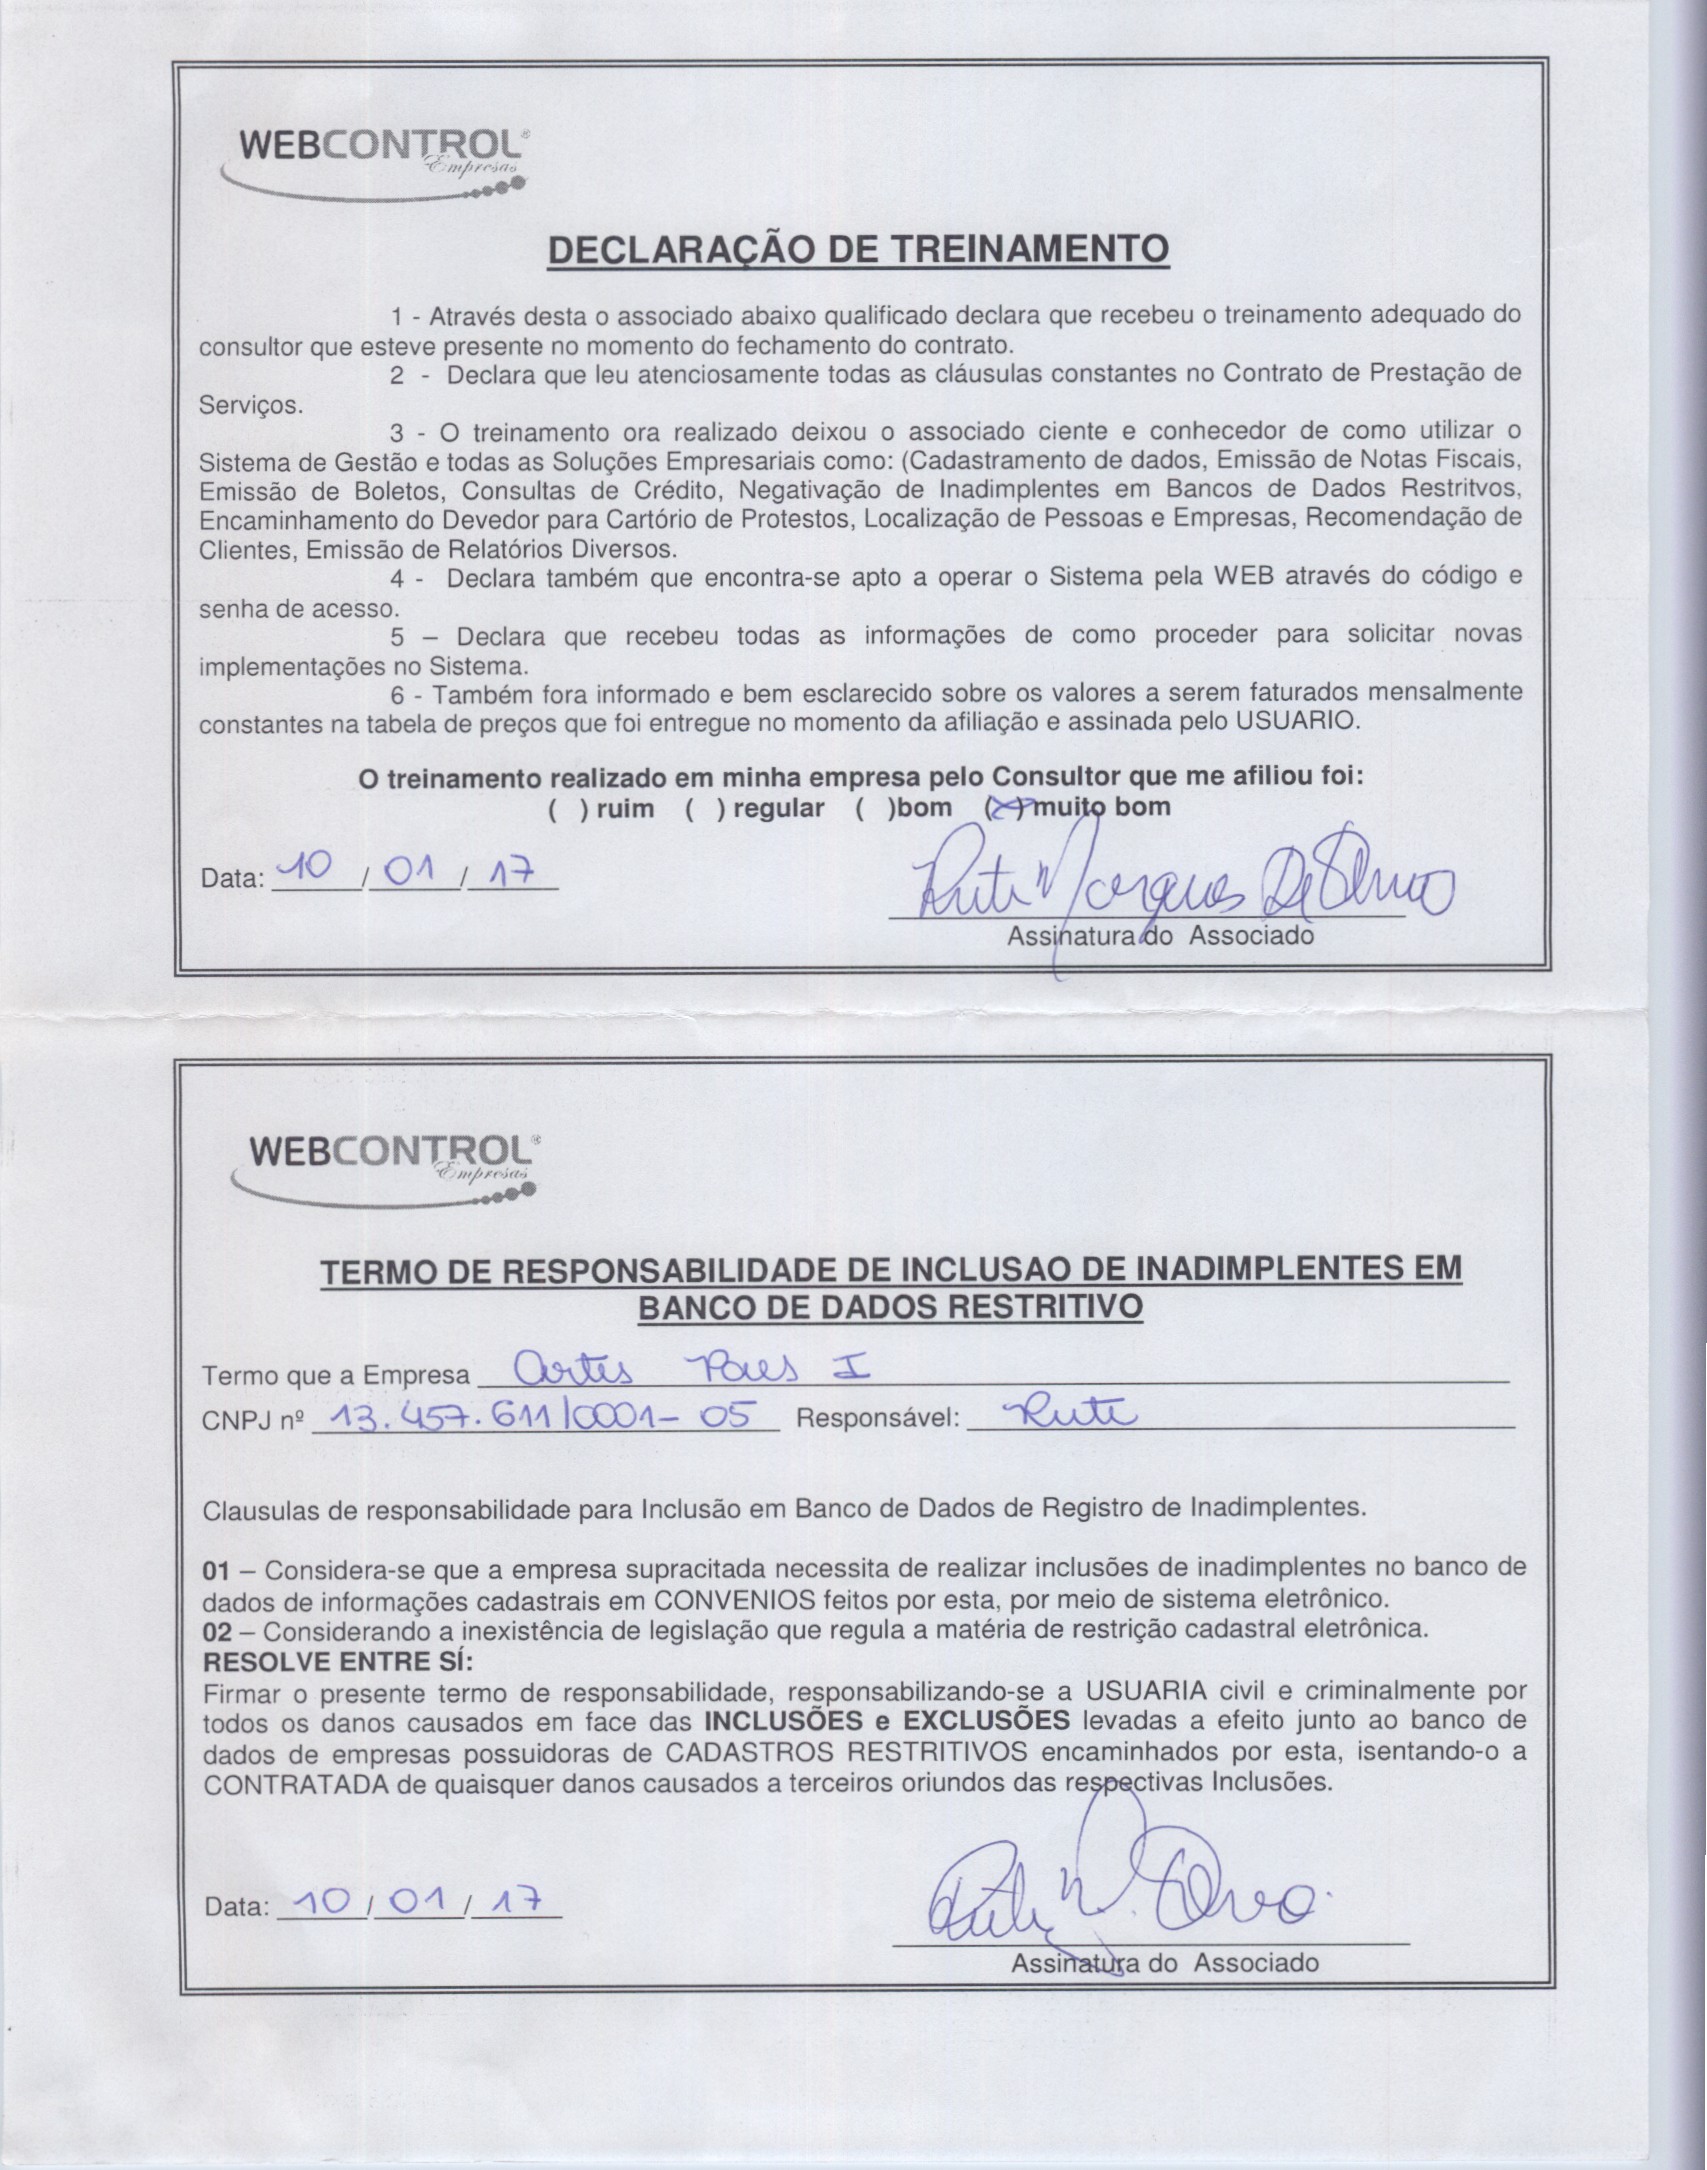 WEBCONTROL®
Empresas
DECLARAÇÃO DE TREINAMENTO
1 - Através desta o associado abaixo qualificado declara que recebeu o treinamento adequado do
consultor que esteve presente no momento do fechamento do contrato.
2 - Declara que leu atenciosamente todas as cláusulas constantes no Contrato de Prestação de
Serviços.
3 - O treinamento ora realizado deixou o associado ciente e conhecedor de como utilizar o
Sistema de Gestão e todas as Soluções Empresariais como: (Cadastramento de dados, Emissão de Notas Fiscais,
Emissão de Boletos, Consultas de Crédito, Negativação de Inadimplentes em Bancos de Dados Restritvos,
Encaminhamento do Devedor para Cartório de Protestos, Localização de Pessoas e Empresas, Recomendação de
Clientes, Emissão de Relatórios Diversos.
4 - Declara também que encontra-se apto a operar o Sistema pela WEB através do código e
senha de acesso.
5 – Declara que recebeu todas as informações de como proceder para solicitar novas
implementações no Sistema.
6 - Também fora informado e bem esclarecido sobre os valores a serem faturados mensalmente
constantes na tabela de preços que foi entregue no momento da afiliação e assinada pelo USUARIO.
O treinamento realizado em minha empresa pelo Consultor que me afiliou foi:
( ) ruim ( ) regular ( )bom (X)muito bom
Data: 10 / 01 / 17
Rute Marques Da Silva
Assinatura do Associado
WEBCONTROL®
Empresas
TERMO DE RESPONSABILIDADE DE INCLUSAO DE INADIMPLENTES EM
BANCO DE DADOS RESTRITIVO
Termo que a Empresa Artes Paes I
CNPJ nº 13.457.611/0001-05 Responsável: Rute
Clausulas de responsabilidade para Inclusão em Banco de Dados de Registro de Inadimplentes.
01 – Considera-se que a empresa supracitada necessita de realizar inclusões de inadimplentes no banco de
dados de informações cadastrais em CONVENIOS feitos por esta, por meio de sistema eletrônico.
02 – Considerando a inexistência de legislação que regula a matéria de restrição cadastral eletrônica.
RESOLVE ENTRE SÍ:
Firmar o presente termo de responsabilidade, responsabilizando-se a USUARIA civil e criminalmente por
todos os danos causados em face das INCLUSÕES e EXCLUSÕES levadas a efeito junto ao banco de
dados de empresas possuidoras de CADASTROS RESTRITIVOS encaminhados por esta, isentando-o a
CONTRATADA de quaisquer danos causados a terceiros oriundos das respectivas Inclusões.
Data: 10 / 01 / 17
Rute M. Silva
Assinatura do Associado